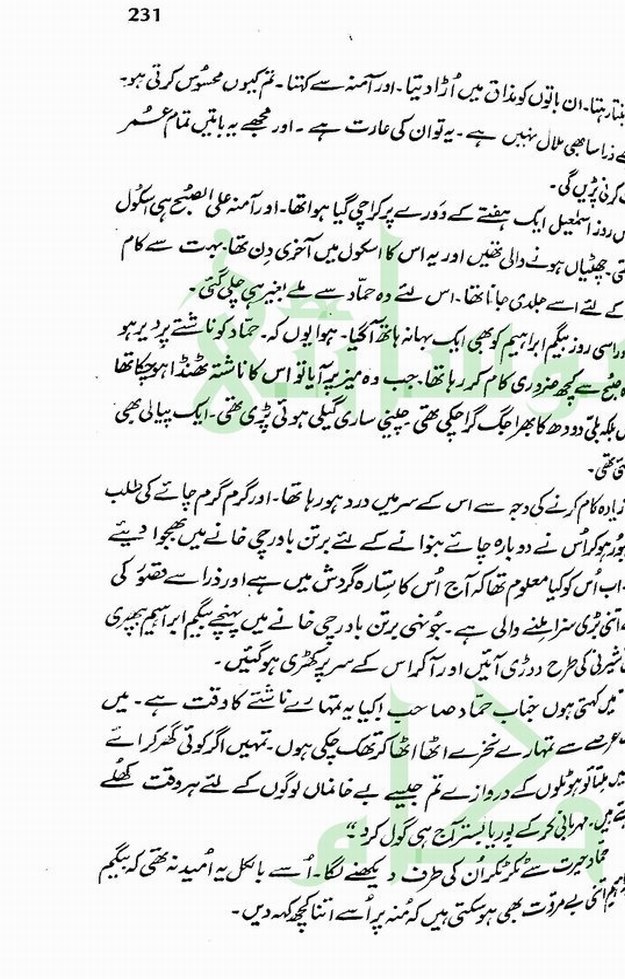 231
ہنتا رہتا۔ ان باتوں کو مذاق میں اُڑا دیتا۔ اور آمنہ سے کہتا۔ تم کیوں محسوس کرتی ہو۔
ذرا سا بھی ملال نہیں ہے۔ یہ تو ان کی عادت ہے ۔ اور مجھے یہ باتیں تمام عمر
کرنی پڑیں گی۔
روز اسمٰعیل ایک ہفتے کے دورے پر کراچی گیا ہوا تھا۔ اور آمنہ علی الصبح ہی اسکول
تھی۔ چھٹیاں ہونے والی تھیں اور یہ اس کا اسکول میں آخری دِن تھا۔ بہت سے کام
کے لئے اسے جلدی جانا تھا۔ اس لئے وہ حمّاد سے ملے بغیر ہی چلی گئی۔
اسی روز بیگم ابراہیم کو بھی ایک بہانہ ہاتھ آ گیا۔ ہوا یوں کہ۔ حمّاد کو ناشتے پر دیر ہو
صبح سے کچھ ضروری کام کر رہا تھا۔ جب وہ میز پر آیا تو اس کا ناشتہ ٹھنڈا ہو چکا تھا
بلکہ بلّی دودھ کا بھرا جگ گرا چکی تھی۔ چینی ساری گیلی ہوئی پڑی تھی۔ ایک پیالی بھی
تھی۔
زیادہ کام کرنے کی وجہ سے اس کے سر میں درد ہو رہا تھا۔ اور گرم گرم چائے کی طلب
ہو کر اُس نے دوبارہ چائے بنوانے کے لئے برتن باورچی خانے میں بھجوا دیئے
اب اُس کو کیا معلوم تھا کہ آج اُس کا ستارہ گردش میں ہے اور ذرا سے قصور کی
اتنی بڑی سزا ملنے والی ہے۔ جُونہی برتن باورچی خانے میں پہنچے بیگم ابراہیم بپھری
شیرنی کی طرح دوڑی آئیں اور آ کر اس کے سر پر کھڑی ہو گئیں۔
میں کہتی ہوں جناب حمّاد صاحب! کیا یہ تمہارے ناشتے کا وقت ہے۔ میں
عرصے سے تمہارے نخرے اٹھا اٹھا کر تھک چکی ہوں۔ تمہیں اگر کوئی گھر کرائے
نہیں ملتا تو ہوٹلوں کے دروازے تم جیسے بے خانماں لوگوں کے لئے ہر وقت کھلے
ہیں۔ مہربانی کر کے بوریا بستر آج ہی گول کر دو"
حمّاد حیرت سے ٹکر ٹکر اُن کی طرف دیکھنے لگا۔ اُسے بالکل یہ اُمید نہ تھی کہ بیگم
اتنی بے مروت بھی ہو سکتی ہیں کہ مُنہ پر اُسے اتنا کچھ کہہ دیں۔